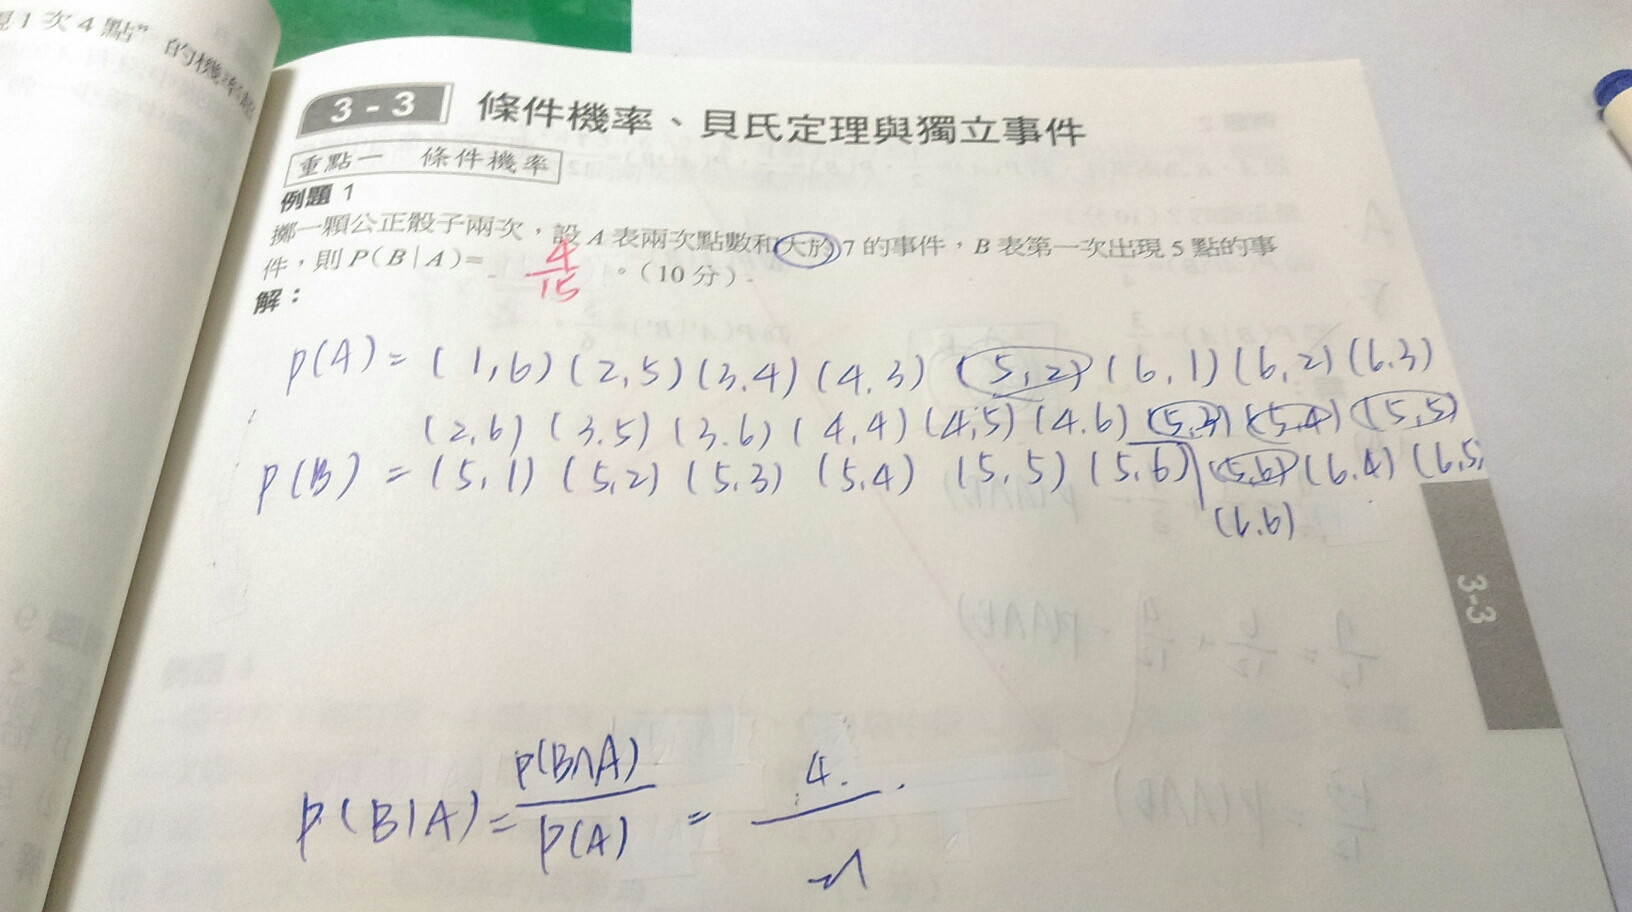 現1次4點”的機率
3-3 條件機率、貝氏定理與獨立事件
重點一 條件機率
例題 1
擲一顆公正骰子兩次，設 A 表兩次點數和大於 7 的事件，B 表第一次出現 5 點的事
件，則 P(B|A)= 4/15 。(10 分)
解：
P(A) = (1,6) (2,5) (3.4) (4.3) (5,2) (6,1) (6,2) (6.3)
(2,6) (3.5) (3.6) (4,4) (4,5) (4.6) (5,3) (5,4) (5,5)
P(B) = (5,1) (5,2) (5.3) (5.4) (5,5) (5,6) (5,6) (6.4) (6,5)
(6.6)
P(B|A) = P(B∩A)/P(A) = 4.
3-3